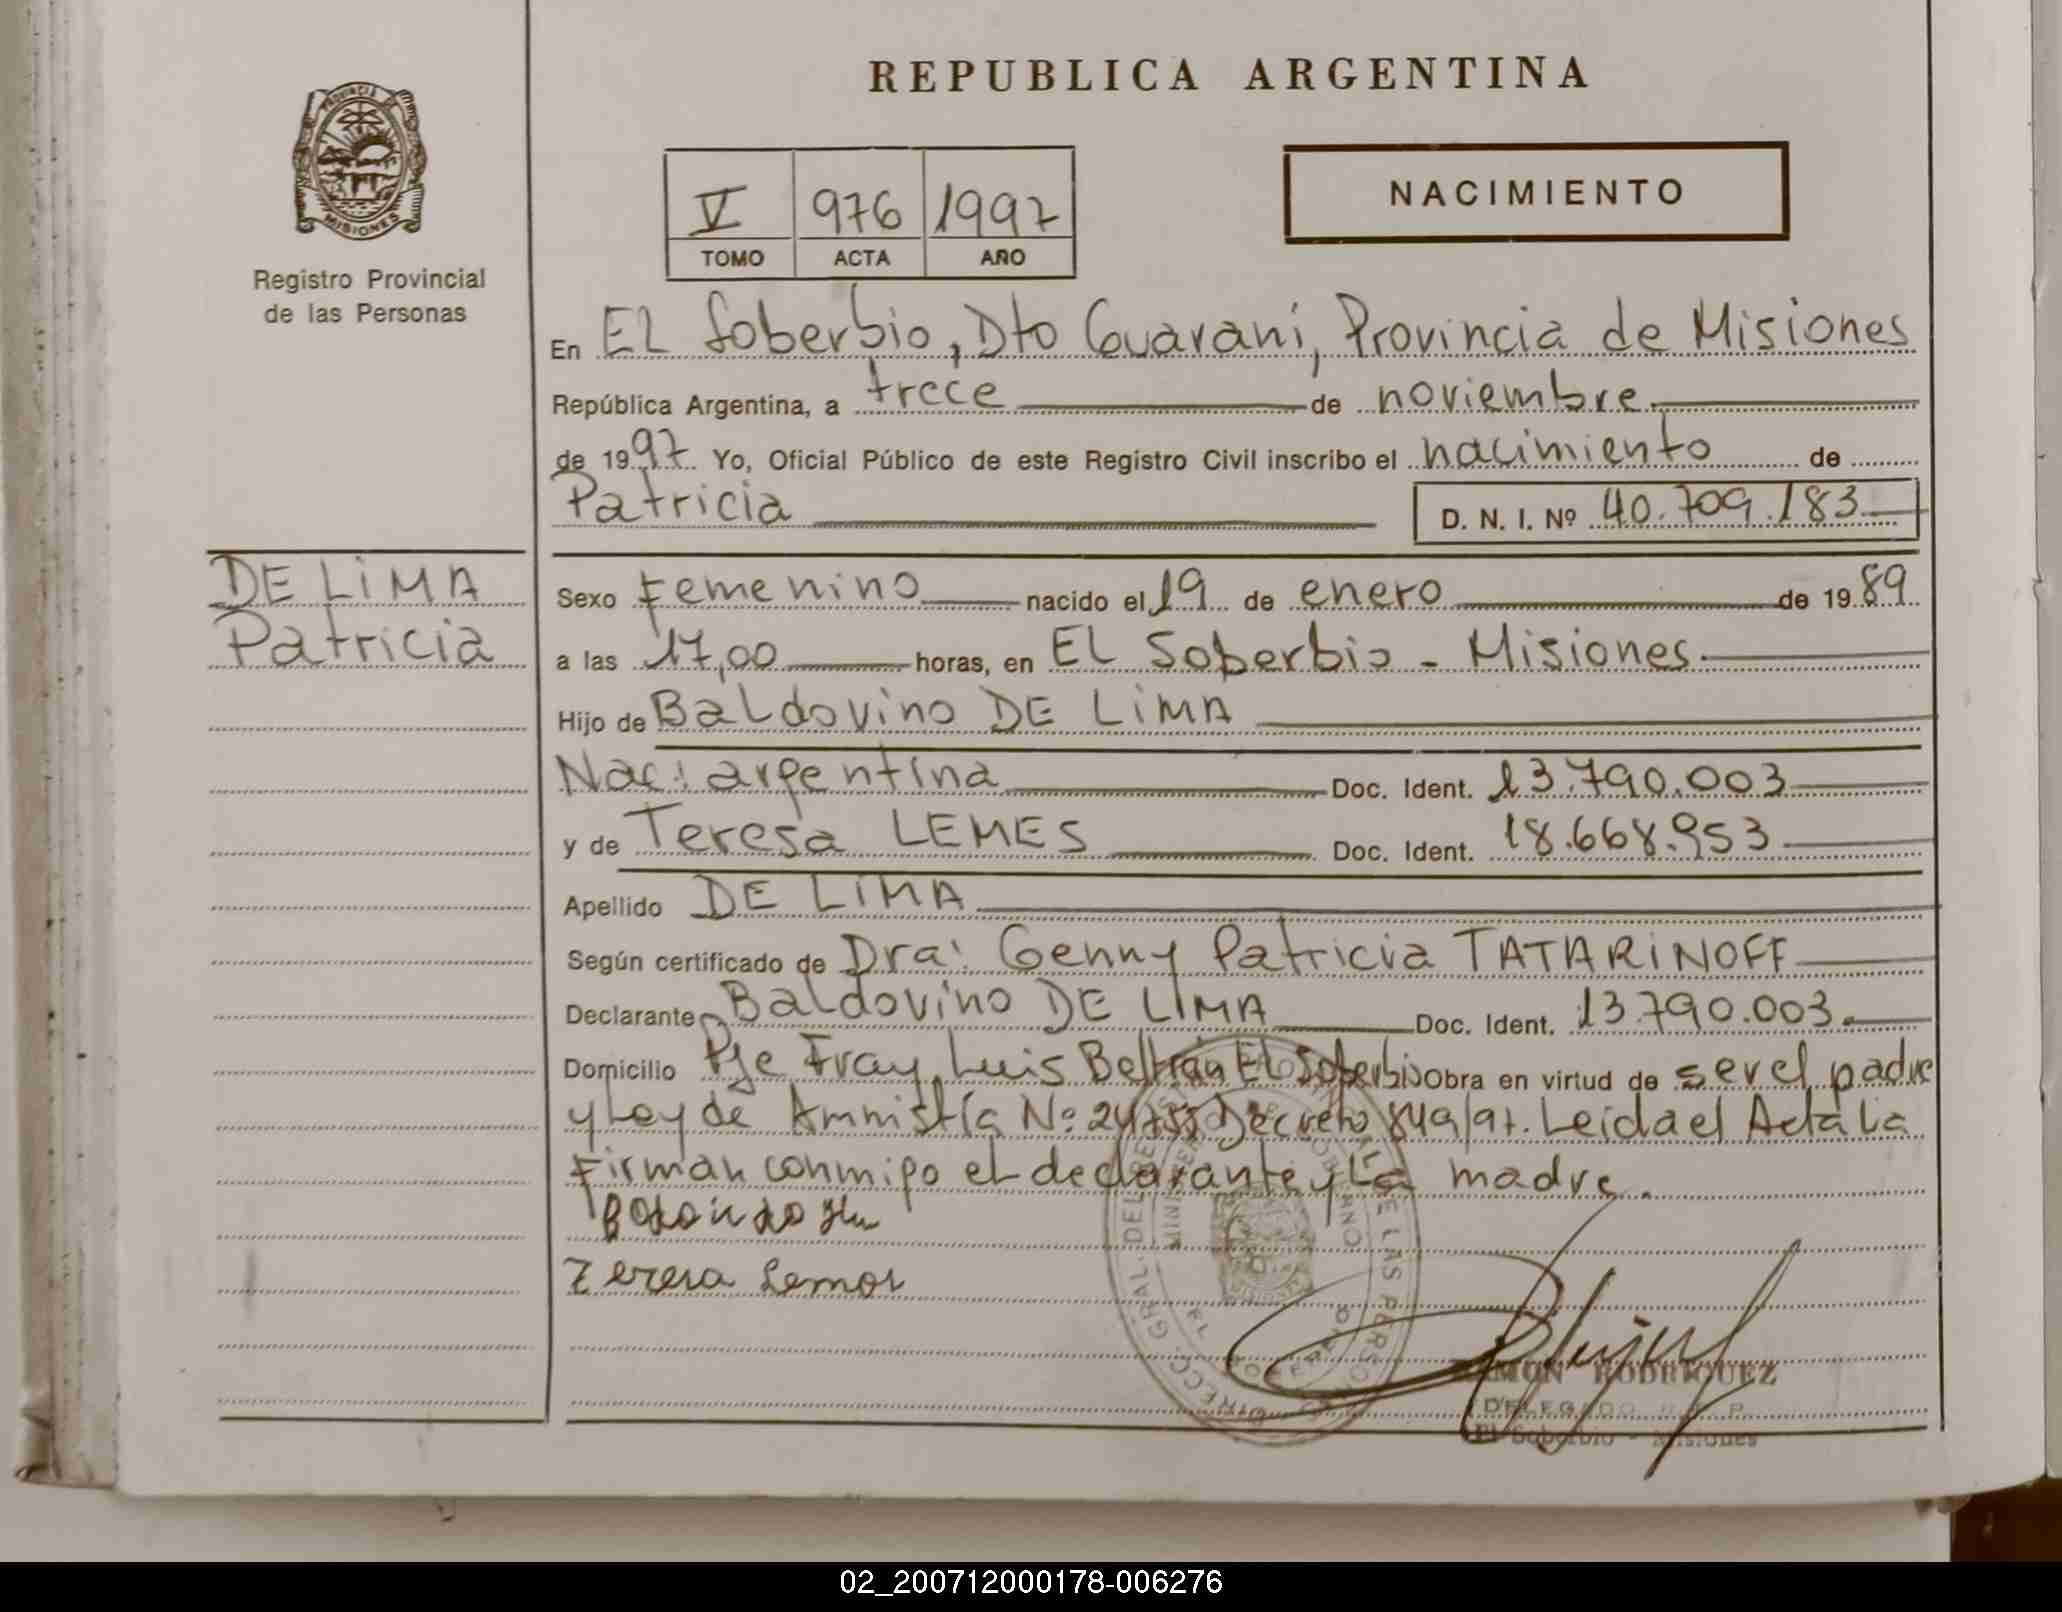 REPUBLICA ARGENTINA
PROVINCIA DE MISIONES
Registro Provincial
de las Personas
V 976 1997
TOMO ACTA AÑO
NACIMIENTO
En EL Soberbio, Dto Guaraní, Provincia de Misiones
República Argentina, a trece de noviembre
de 1997 Yo, Oficial Público de este Registro Civil inscribo el nacimiento de
Patricia D. N. I. Nº 40.709.183
DE LiMA
Patricia
Sexo Femenino nacido el 19 de enero de 1989
a las 17,00 horas, en EL Soberbio - Misiones
Hijo de Baldovino DE LiMA
Nac: argentina Doc. Ident. 13.790.003
y de Teresa LEMES Doc. Ident. 18.668.953
Apellido DE LiMA
Según certificado de Dra: Genny Patricia TATARiNOFF
Declarante Baldovino DE LiMA Doc. Ident. 13.790.003.
Domicilio Pje Fray Luis Beltrán EL Soberbio Obra en virtud de ser el padre
y Ley de Amnistía Nº 24755 Decreto 849/97. Leida el Acta La
Firman conmigo el declarante y La madre.
Teresa Lemos
RAMON RODRIGUEZ
DELEGADO R. P.
El Soberbio - Misiones
02_200712000178-006276